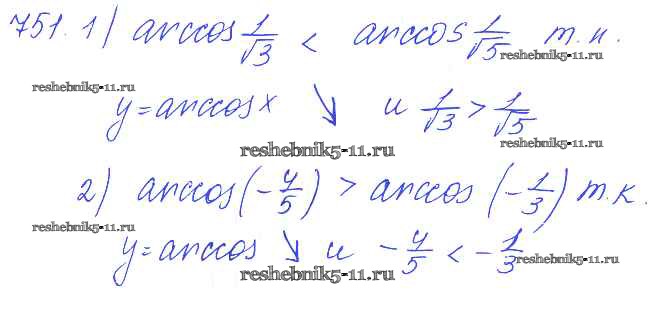 751. 1) arccos 1/√3 < arccos 1/√5 т.к.
reshebnik5-11.ru
reshebnik5-11.ru
y = arccos x ↘ и 1/√3 > 1/√5
reshebnik5-11.ru
reshebnik5-11.ru
2) arccos(-4/5) > arccos(-1/3) т.к.
reshebnik5-11.ru
y = arccos ↘ и -4/5 < -1/3
reshebnik5-11.ru
reshebnik5-11.ru